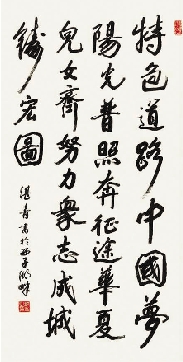 特色道路中國夢
陽光普照奔征途華夏
兒女齊努力衆志成城
鑄宏圖